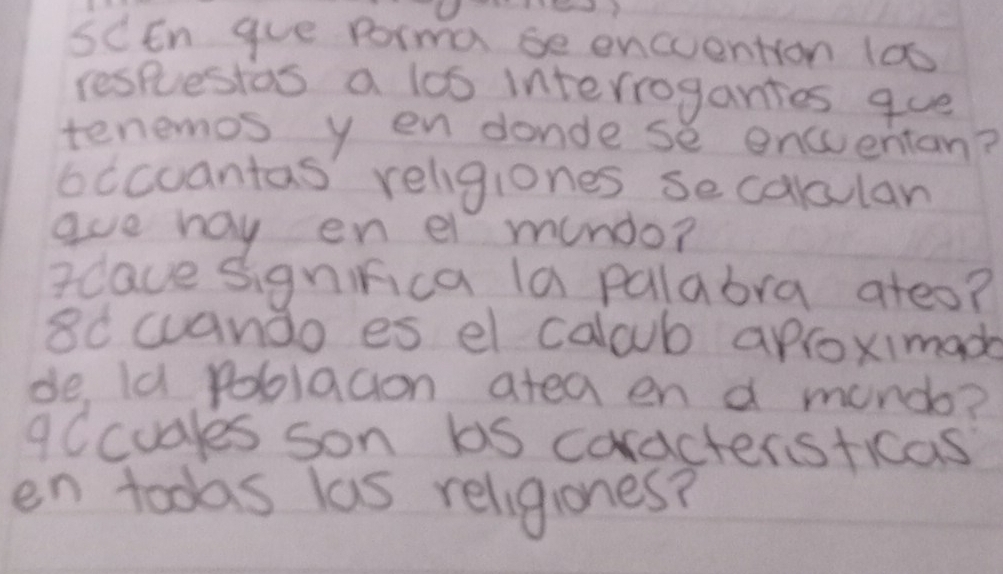 5¿En que forma se encuentran las
respuestas a los interrogantes que
tenemos y en donde se encuentan?
6¿cuantas religiones se calculan
que hay en el mundo?
7¿que significa la palabra ateo?
8¿cuando es el calculo aproximado
de la poblacion atea en el mundo?
9¿cuales son las caracteristicas
en todas las religiones?